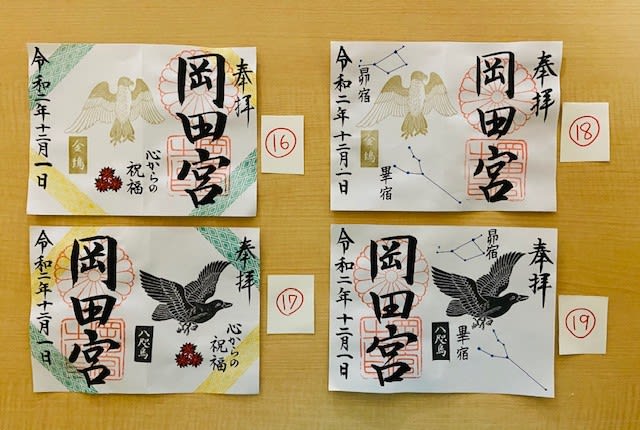 奉拝
岡田宮
心からの
祝福
金鵄
令和二年十二月一日
16
奉拝
岡田宮
昴宿
金鵄
畢宿
令和二年十二月一日
18
奉拝
心からの
祝福
八咫烏
岡田宮
令和二年十二月一日
17
奉拝
昴宿
畢宿
八咫烏
岡田宮
令和二年十二月一日
19